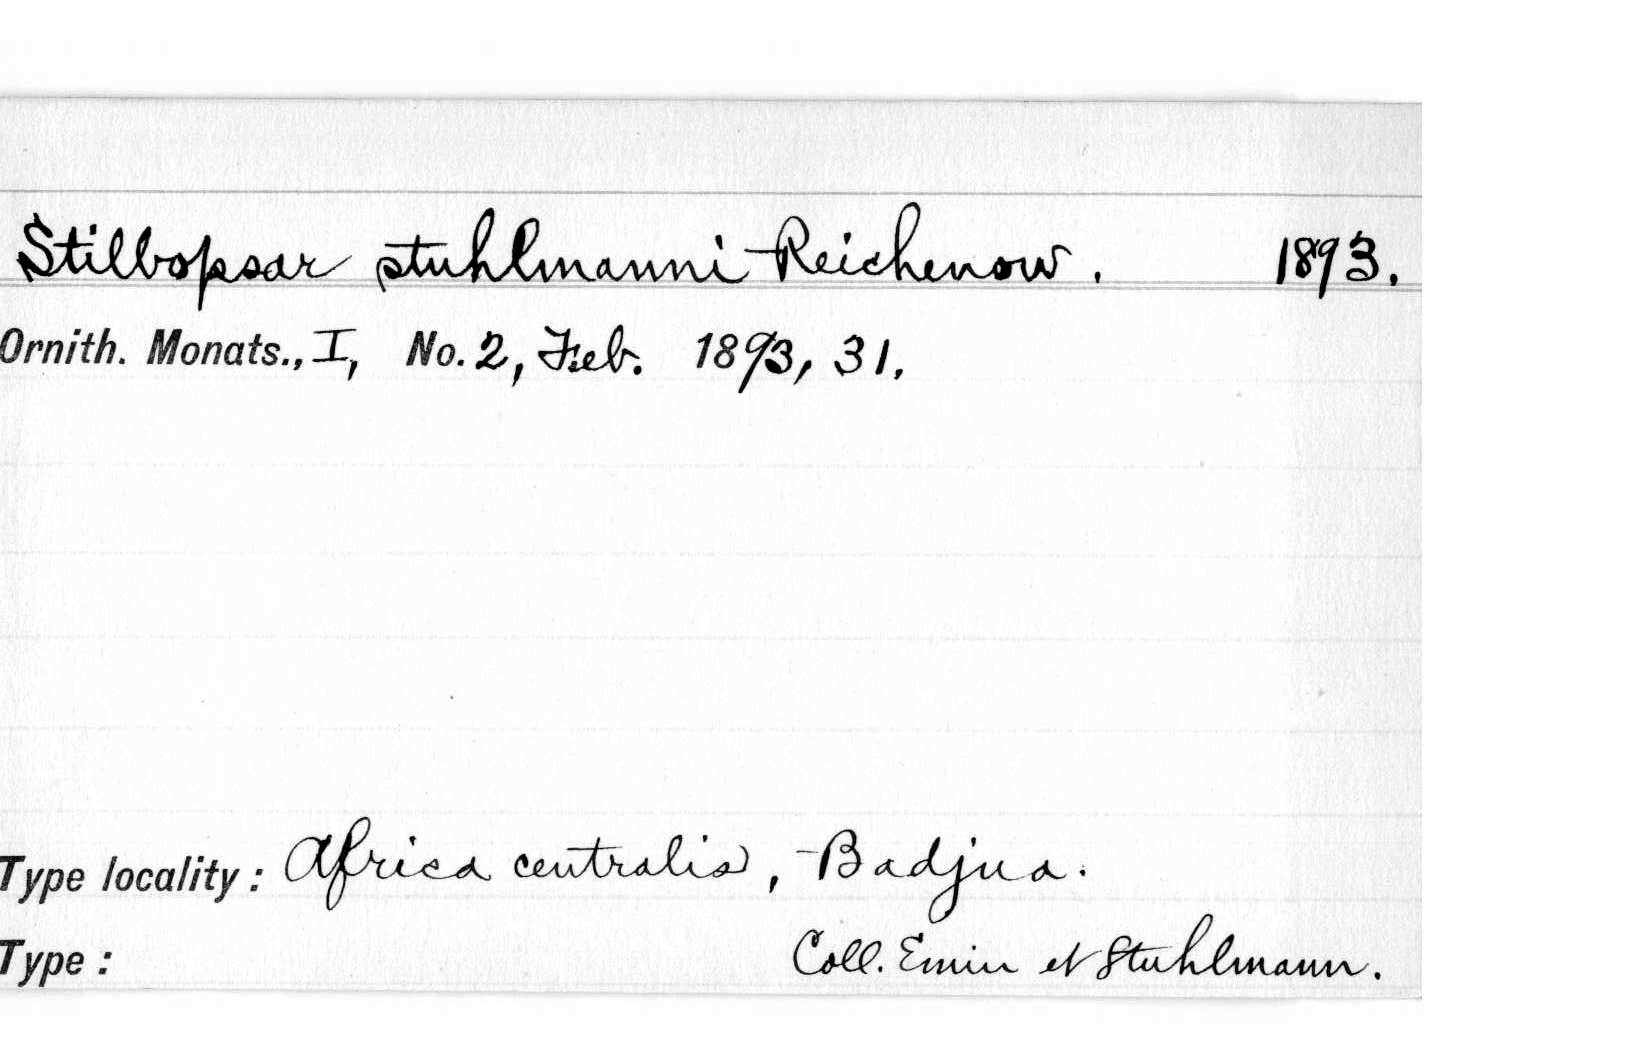 Stilbopsar stuhlmanni Reichenow. 1893.
Ornith. Monats., I, No. 2, Feb. 1893, 31.
Type locality: Africa centralis, Badjua.
Type: Coll. Emin et Stuhlmann.